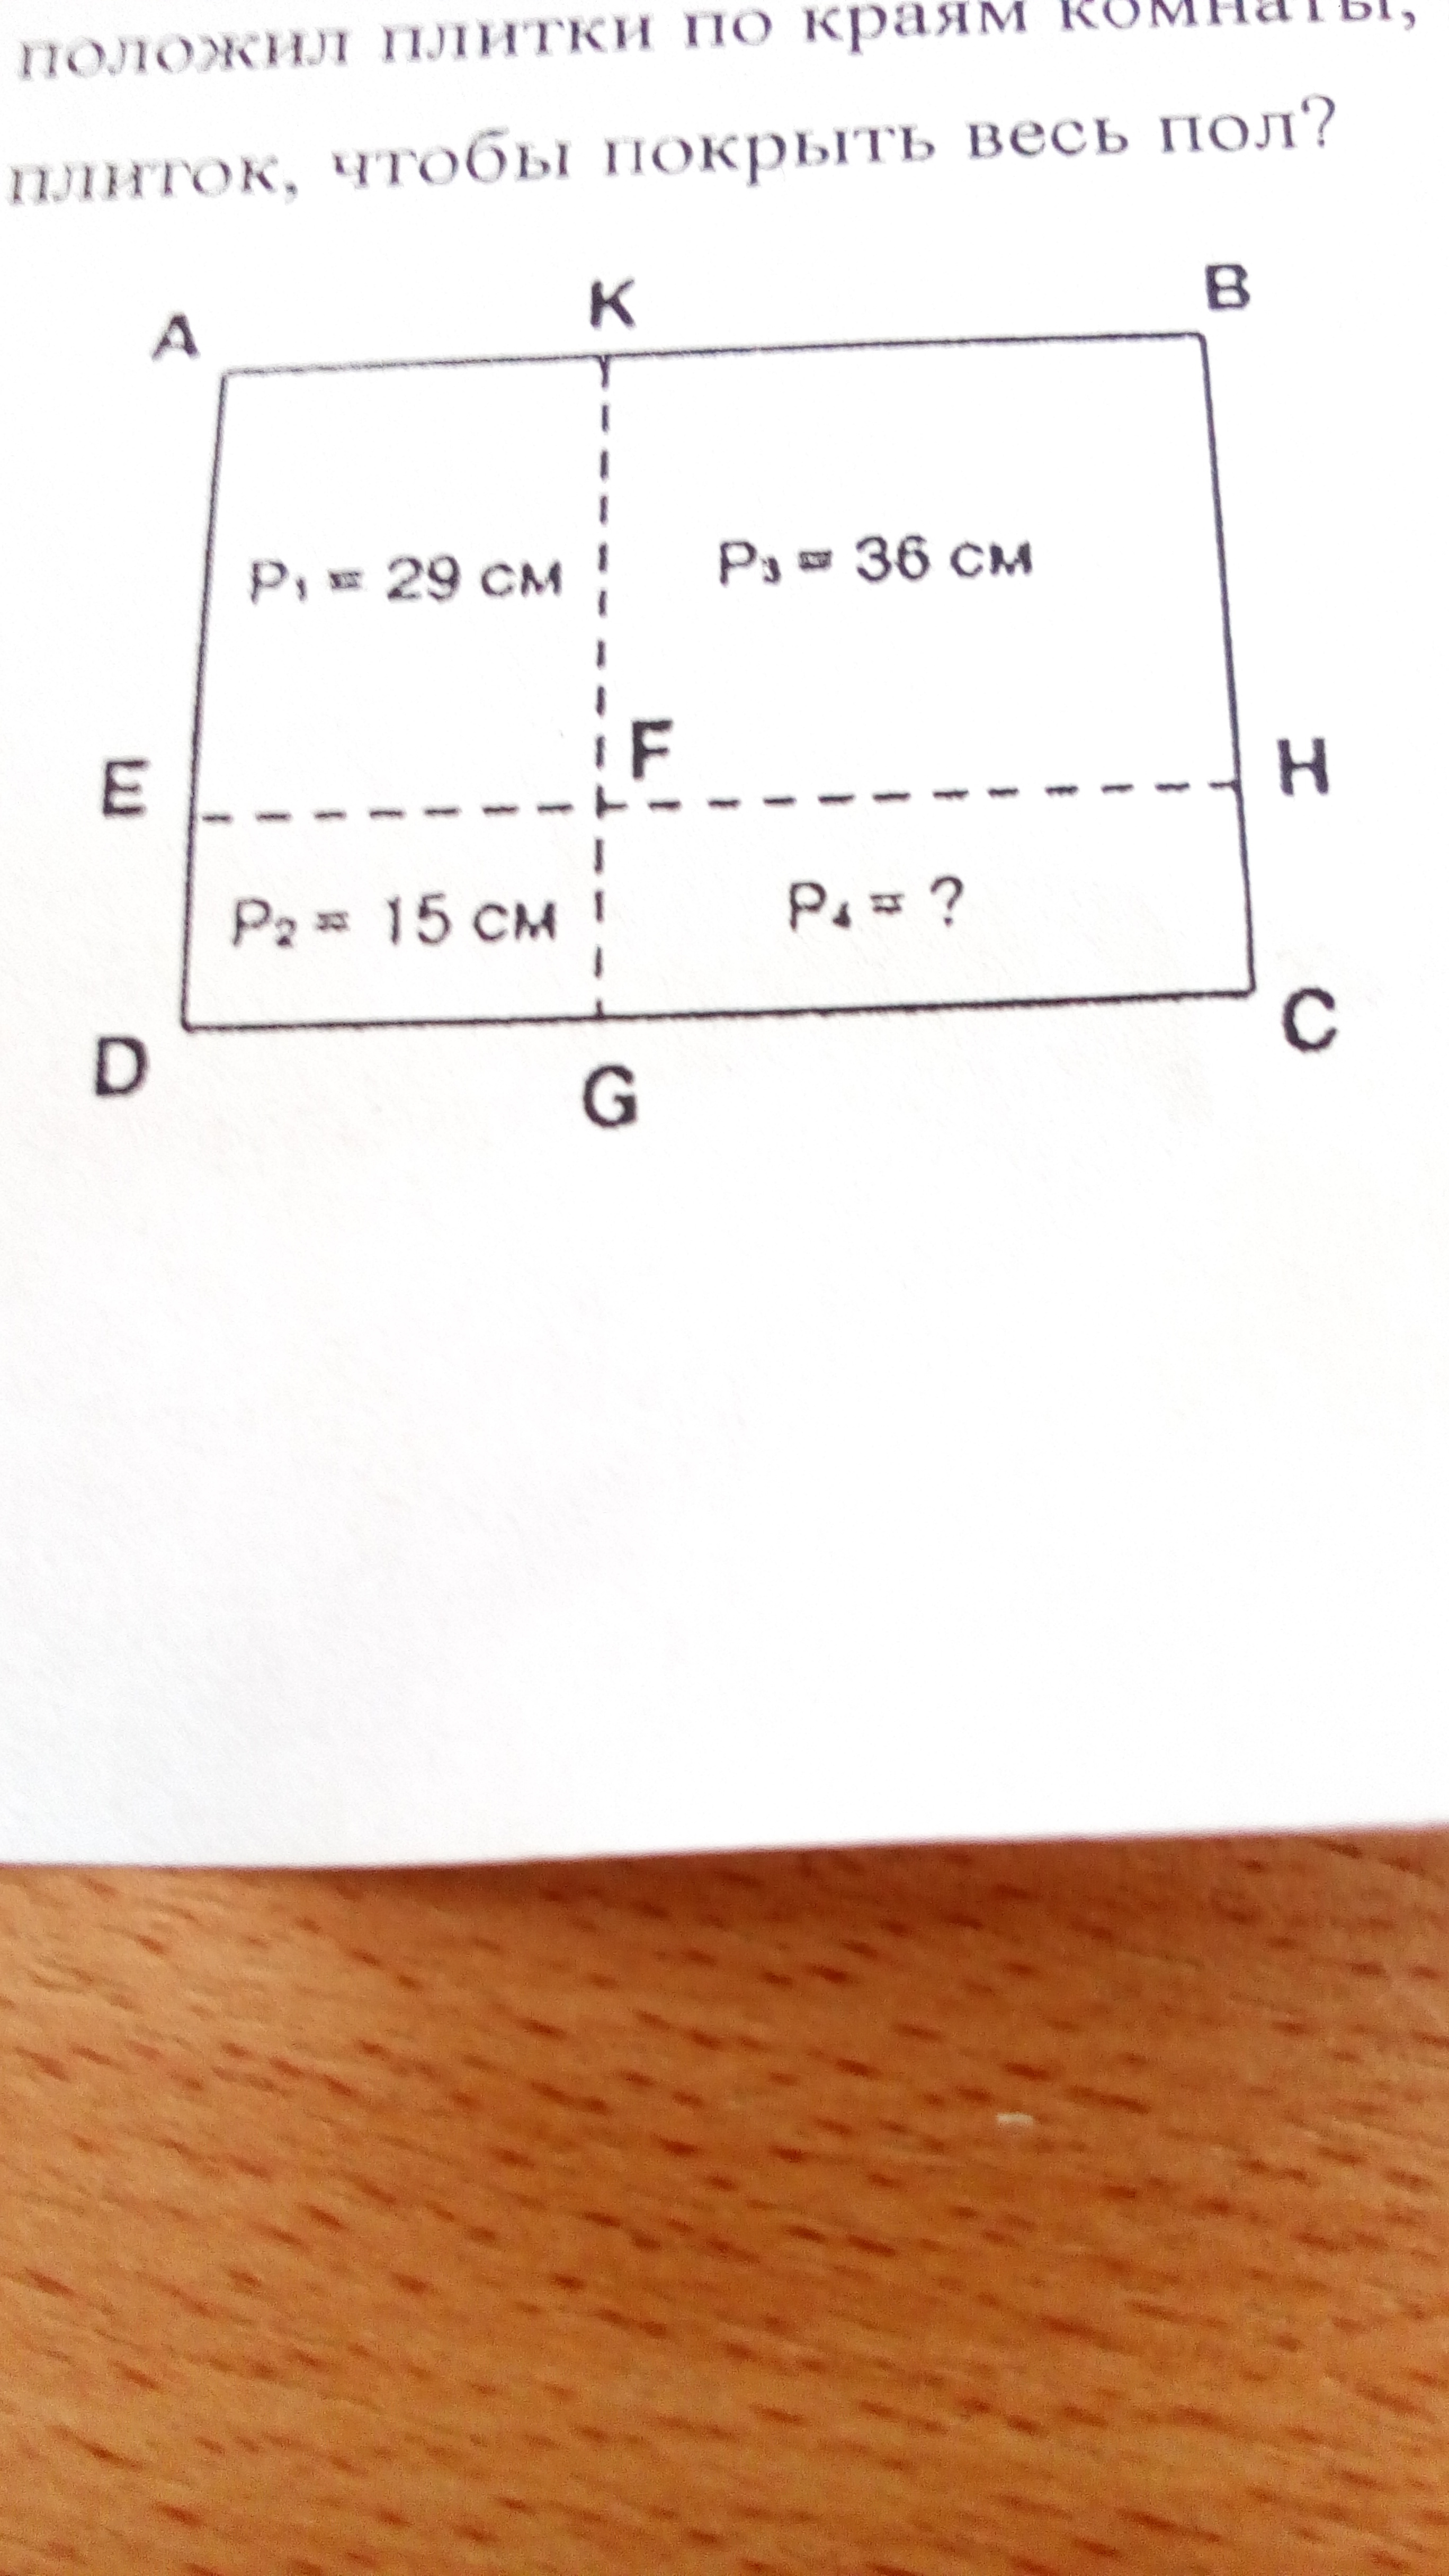 положил плитки по краям комнаты,
плиток, чтобы покрыть весь пол?
A K B
P₁ = 29 см P₃ = 36 см
E F H
P₂ = 15 см P₄ = ?
D G C